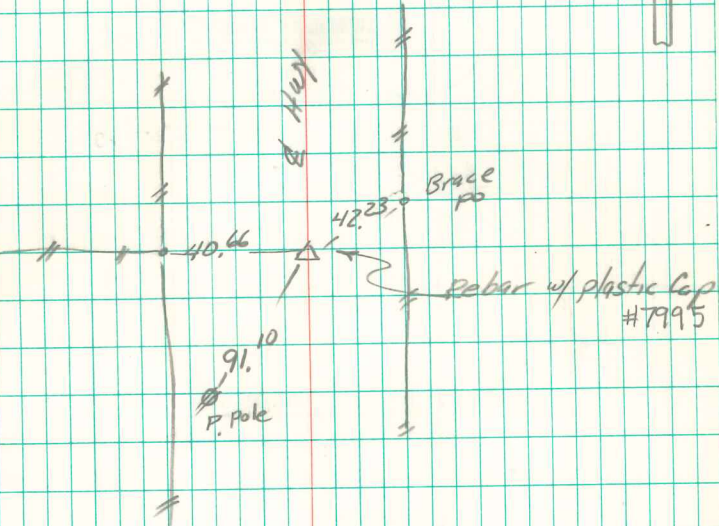 ℄ Hwy
Brace
po
42.23
40.66
Rebar w/ plastic Cap
#7995
91.10
P. pole